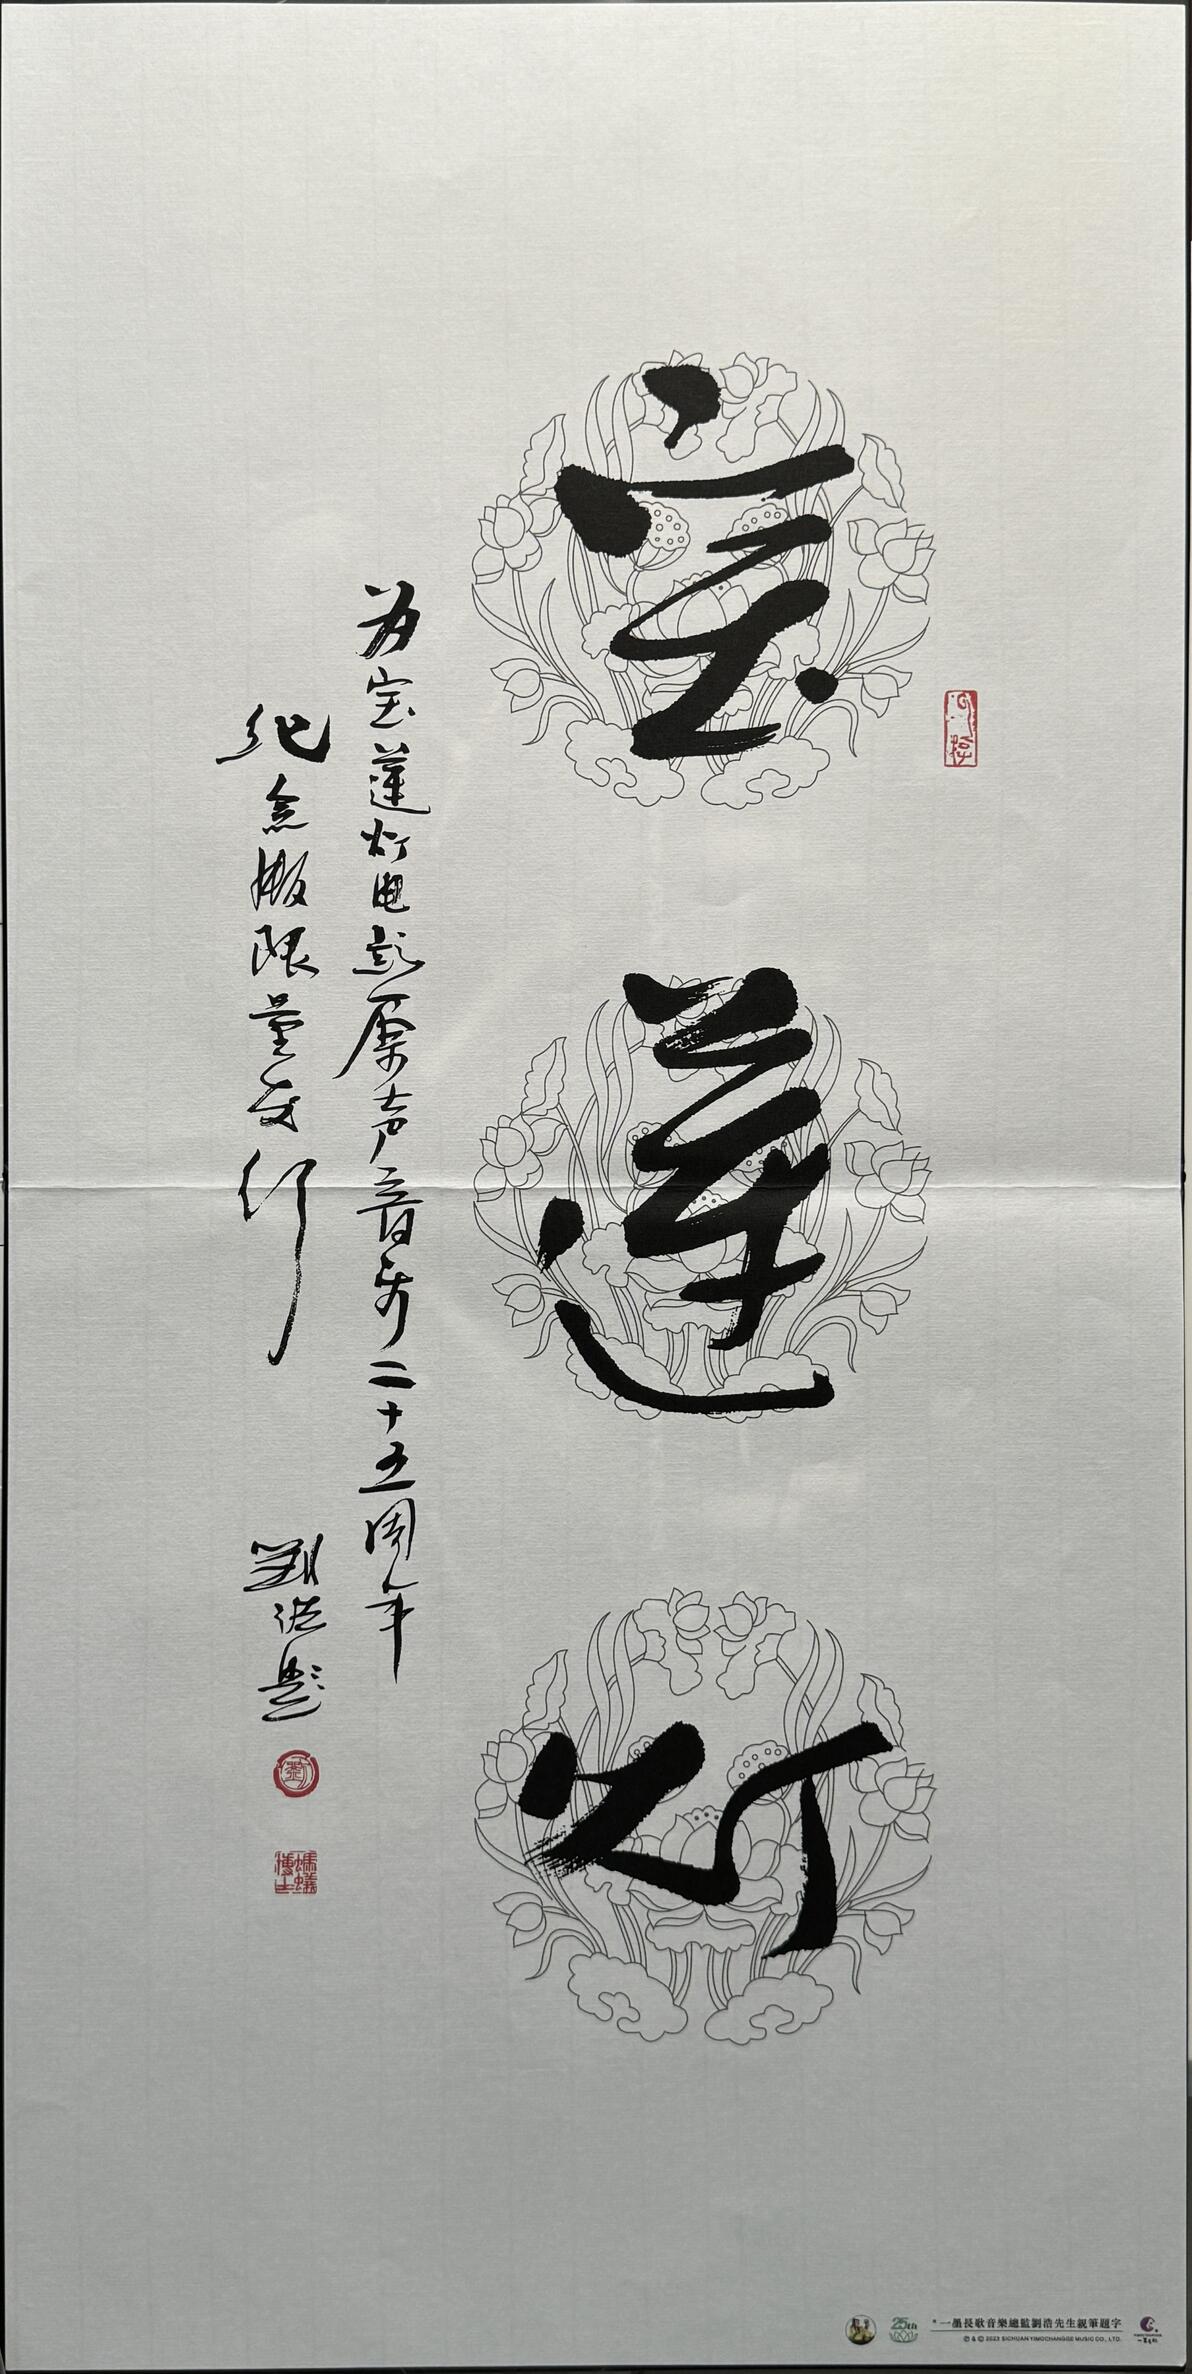 宝莲灯
为宝莲灯电影原声音乐二十五周年
纪念版限量发行
刘浩题
蚂蟻博士
25th
*一墨長歌音樂總監劉浩先生親筆題字
℗ & © 2023 SICHUAN YIMOCHANGGE MUSIC CO., LTD.